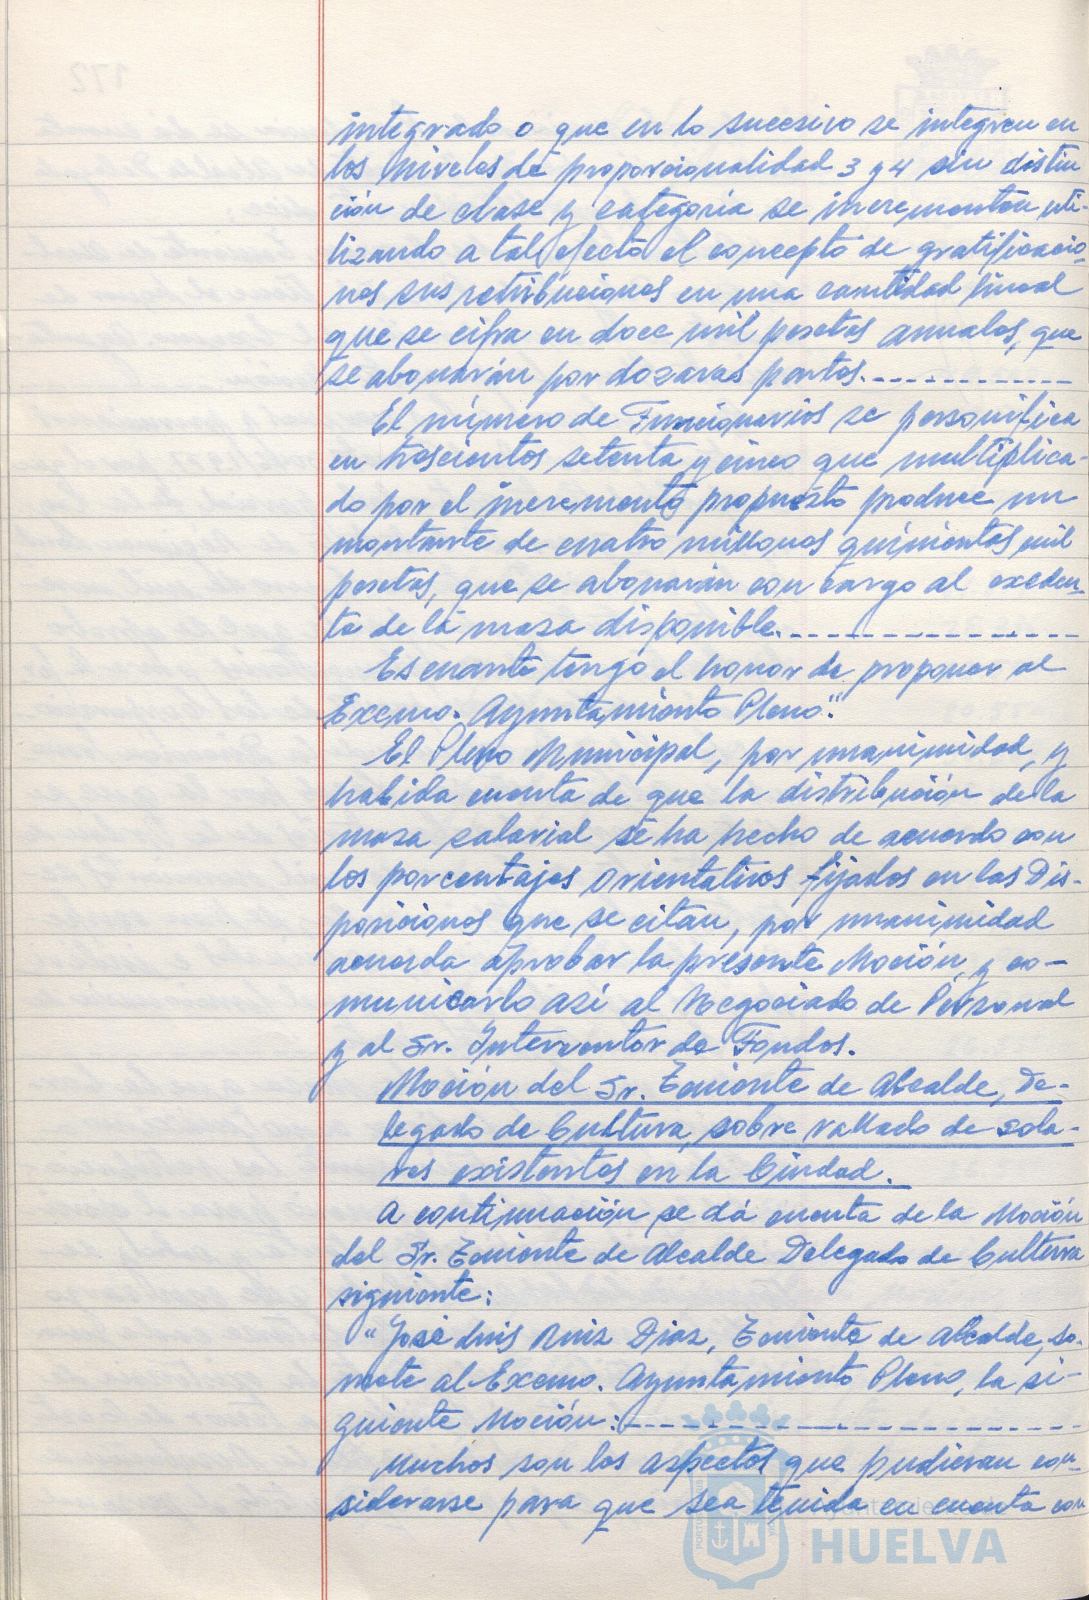 integrado o que en lo sucesivo se integren en
los Niveles de proporcionalidad 3 y 4 sin distin
ción de clase y categoria se incrementen uti-
lizando a tal efecto el concepto de gratificacio-
nes sus retribuciones en una cantidad lineal
que se cifra en doce mil pesetas anuales, que
se abonarán por dozavas partes.------------
El número de Funcionarios se personifica
en trescientos setenta y cinco que multiplica-
do por el incremento propuesto produce un
montante de cuatro millones quinientas mil
pesetas, que se abonarán con cargo al exceden-
te de la masa disponible.---------------
Es cuanto tengo el honor de proponer al
Excmo. Ayuntamiento Pleno".
El Pleno Municipal, por unanimidad, y
habida cuenta de que la distribución de la
masa salarial se ha hecho de acuerdo con
los porcentajes orientativos fijados en las Dis-
posiciones que se citan, por unanimidad
acuerda aprobar la presente Moción, y co-
municarlo así al Negociado de Personal
y al Sr. Interventor de Fondos.
Moción del Sr. Teniente de Alcalde, De-
legado de Cultura, sobre vallado de sola-
res existentes en la Ciudad.
A continuación se dá cuenta de la Moción
del Sr. Teniente de Alcalde Delegado de Cultura
siguiente:
"José Luis Ruiz Diaz, Teniente de Alcalde, so-
mete al Excmo. Ayuntamiento Pleno, la si-
guiente Moción:------------------
Muchos son los aspectos que pudieran con-
siderarse para que sea tenida en cuenta con
HUELVA